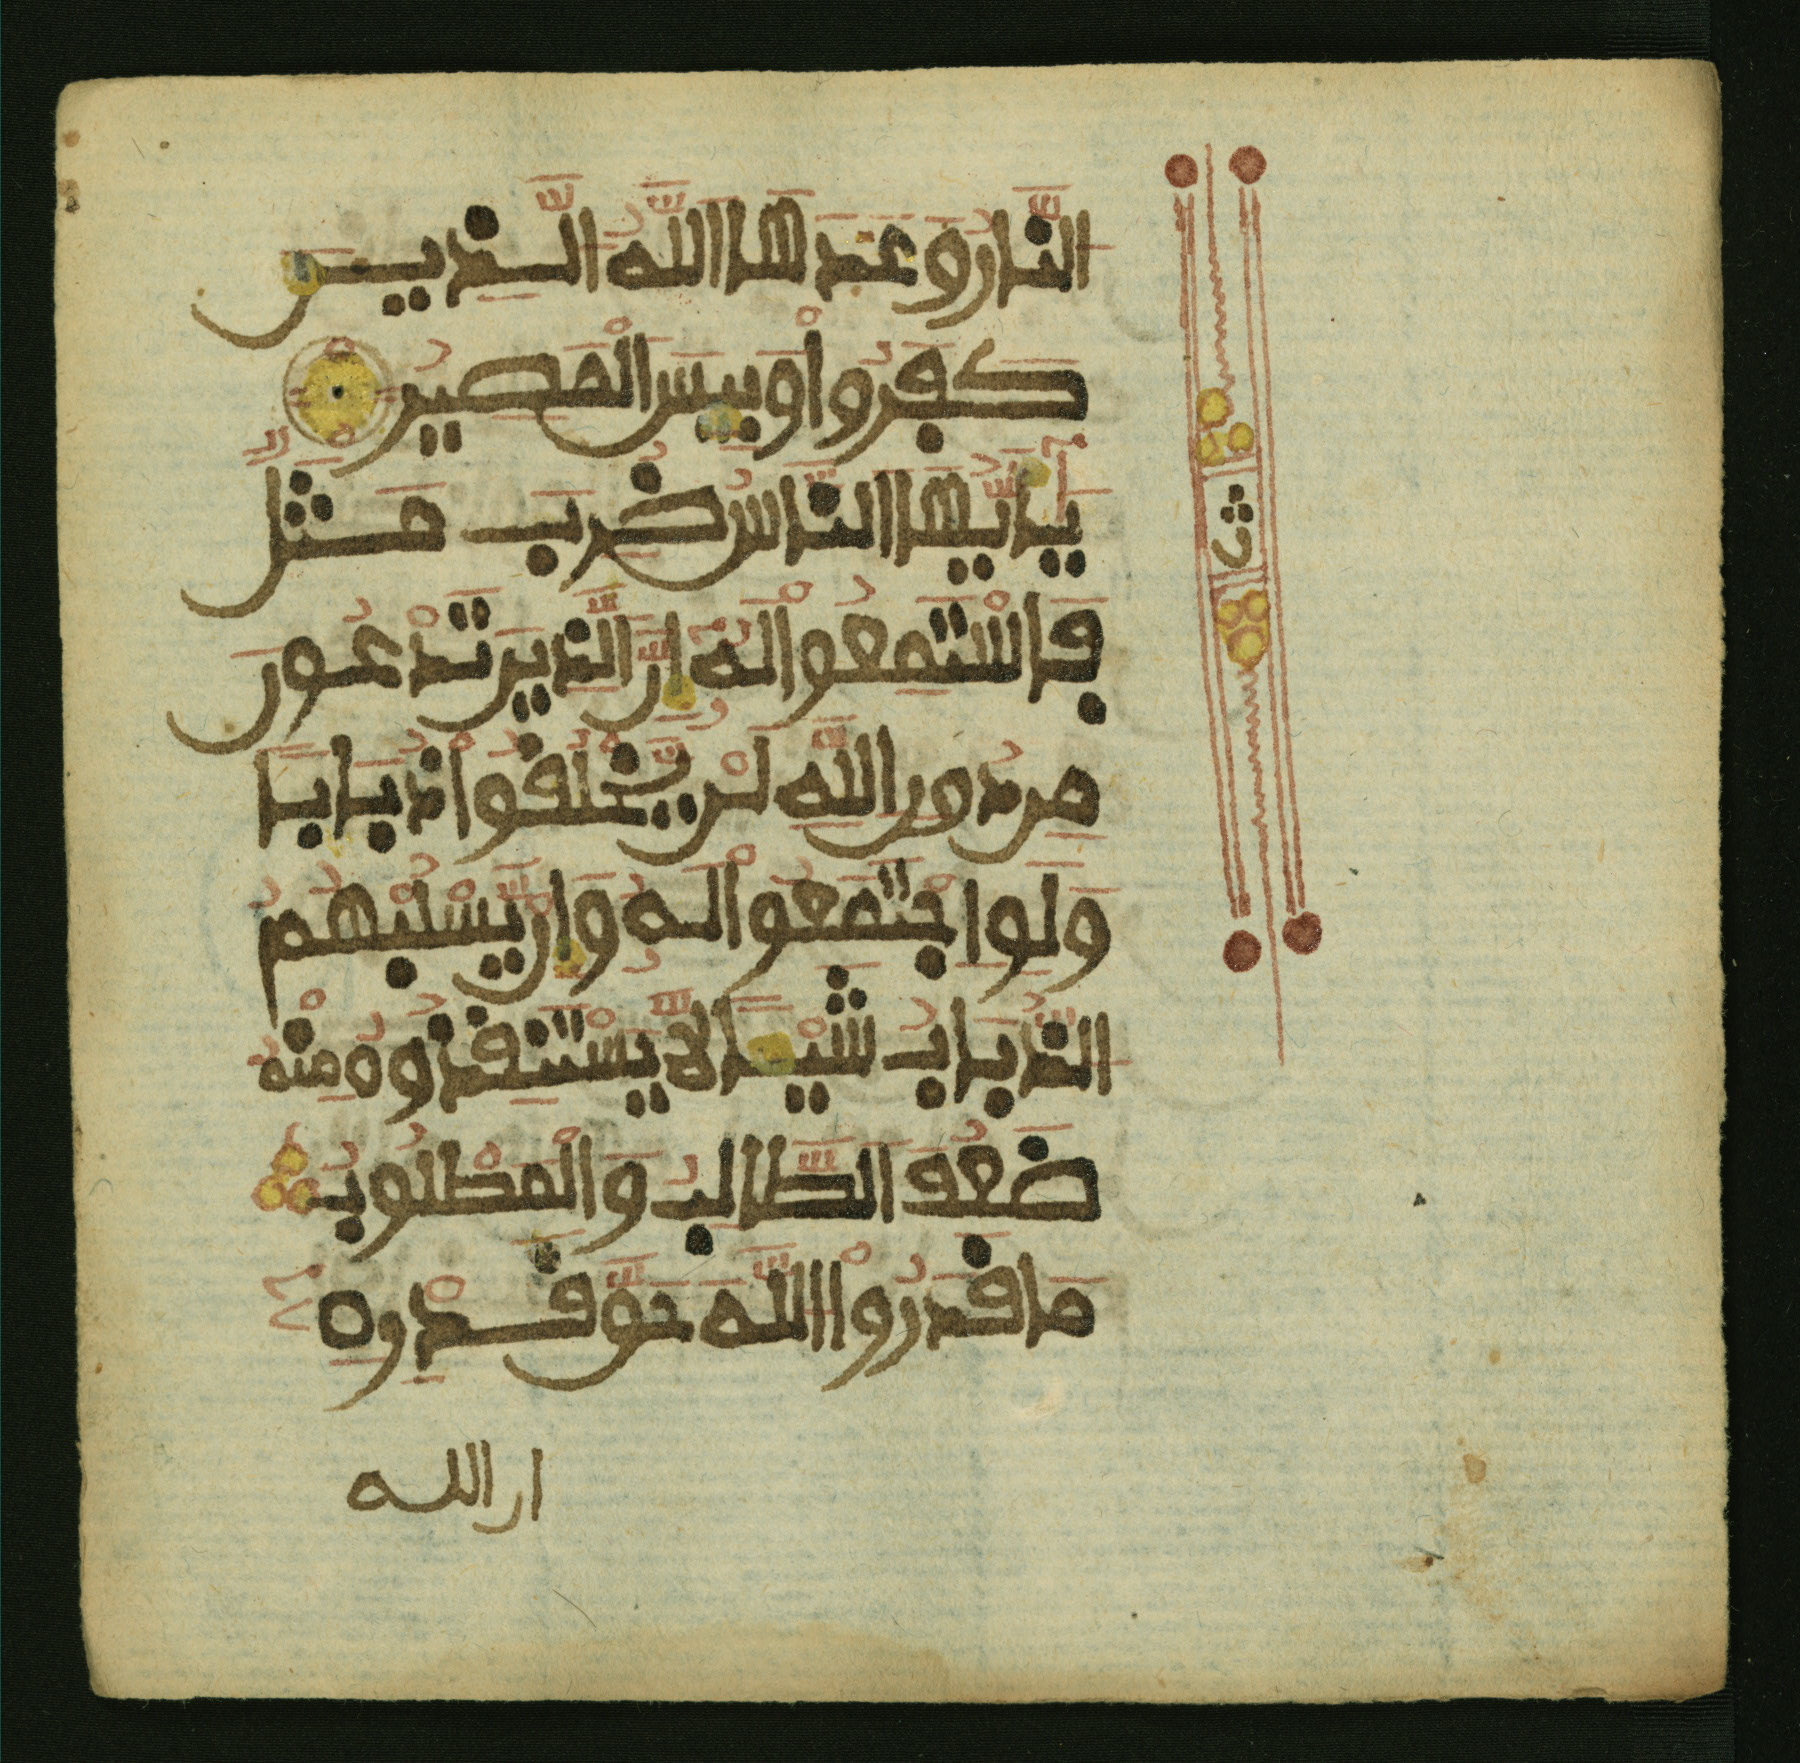 النار وعدها الله الذين
كفروا وبيس المصير
يايها الناس ضرب مثل
فاستمعوا له ان الذين تدعون
من دون الله لن يخلقوا ذبابا
ولو اجتمعوا له وان يسلبهم
الذباب شيا لا يستنقذوه منه
ضعف الطالب والمطلوب
ما قدروا الله حق قدره
ان الله
ث